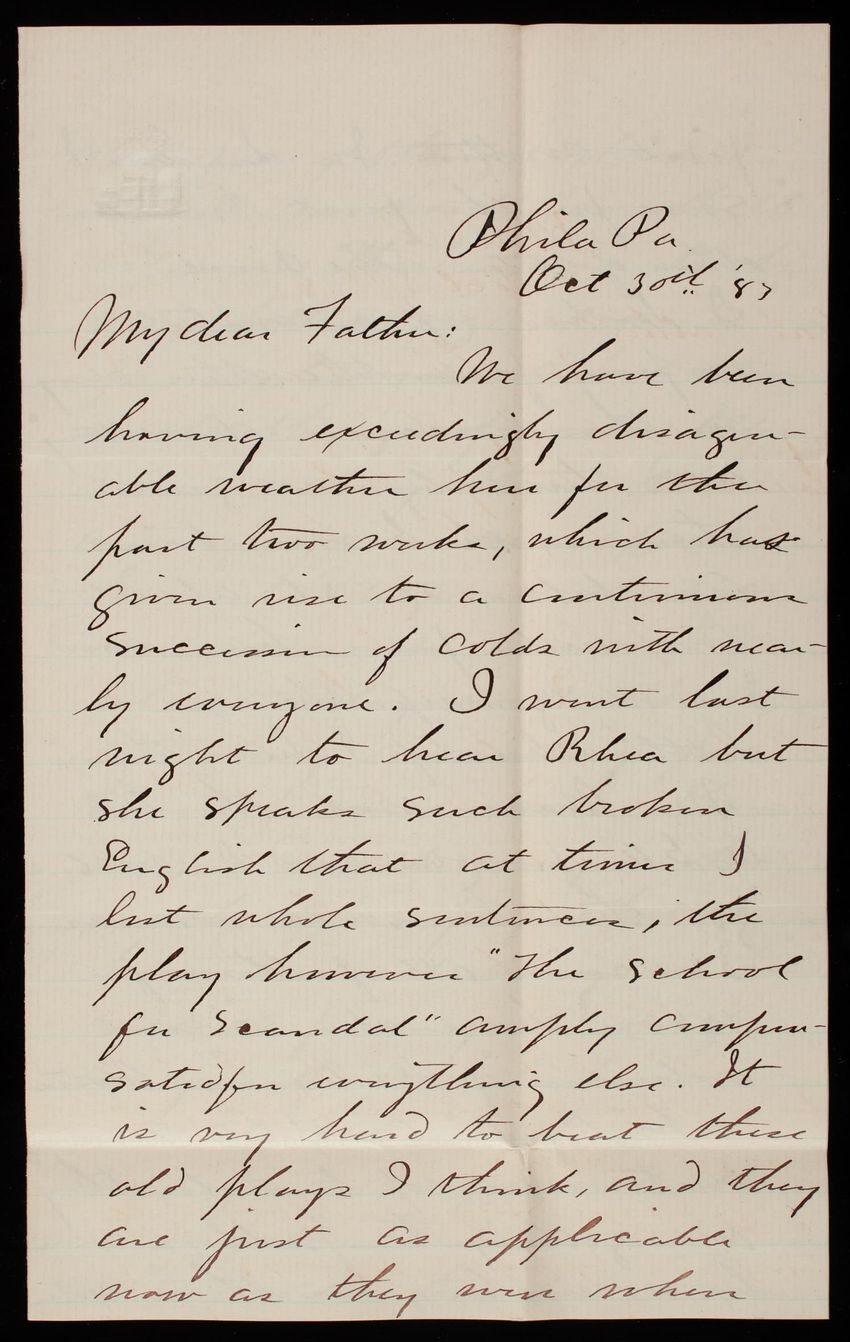 Phila Pa.
Oct 30th '87
My dear Father:
We have been
having exceedingly disagree-
able weather here for the
past two weeks, which has
given rise to a continuous
succession of colds with near-
ly everyone. I went last
night to hear Rhea but
she speaks such broken
English that at times I
lost whole sentences; the
play however "The School
for Scandal" amply compen-
sated for everything else. It
is very hard to beat these
old plays I think, and they
are just as applicable
now as they were when